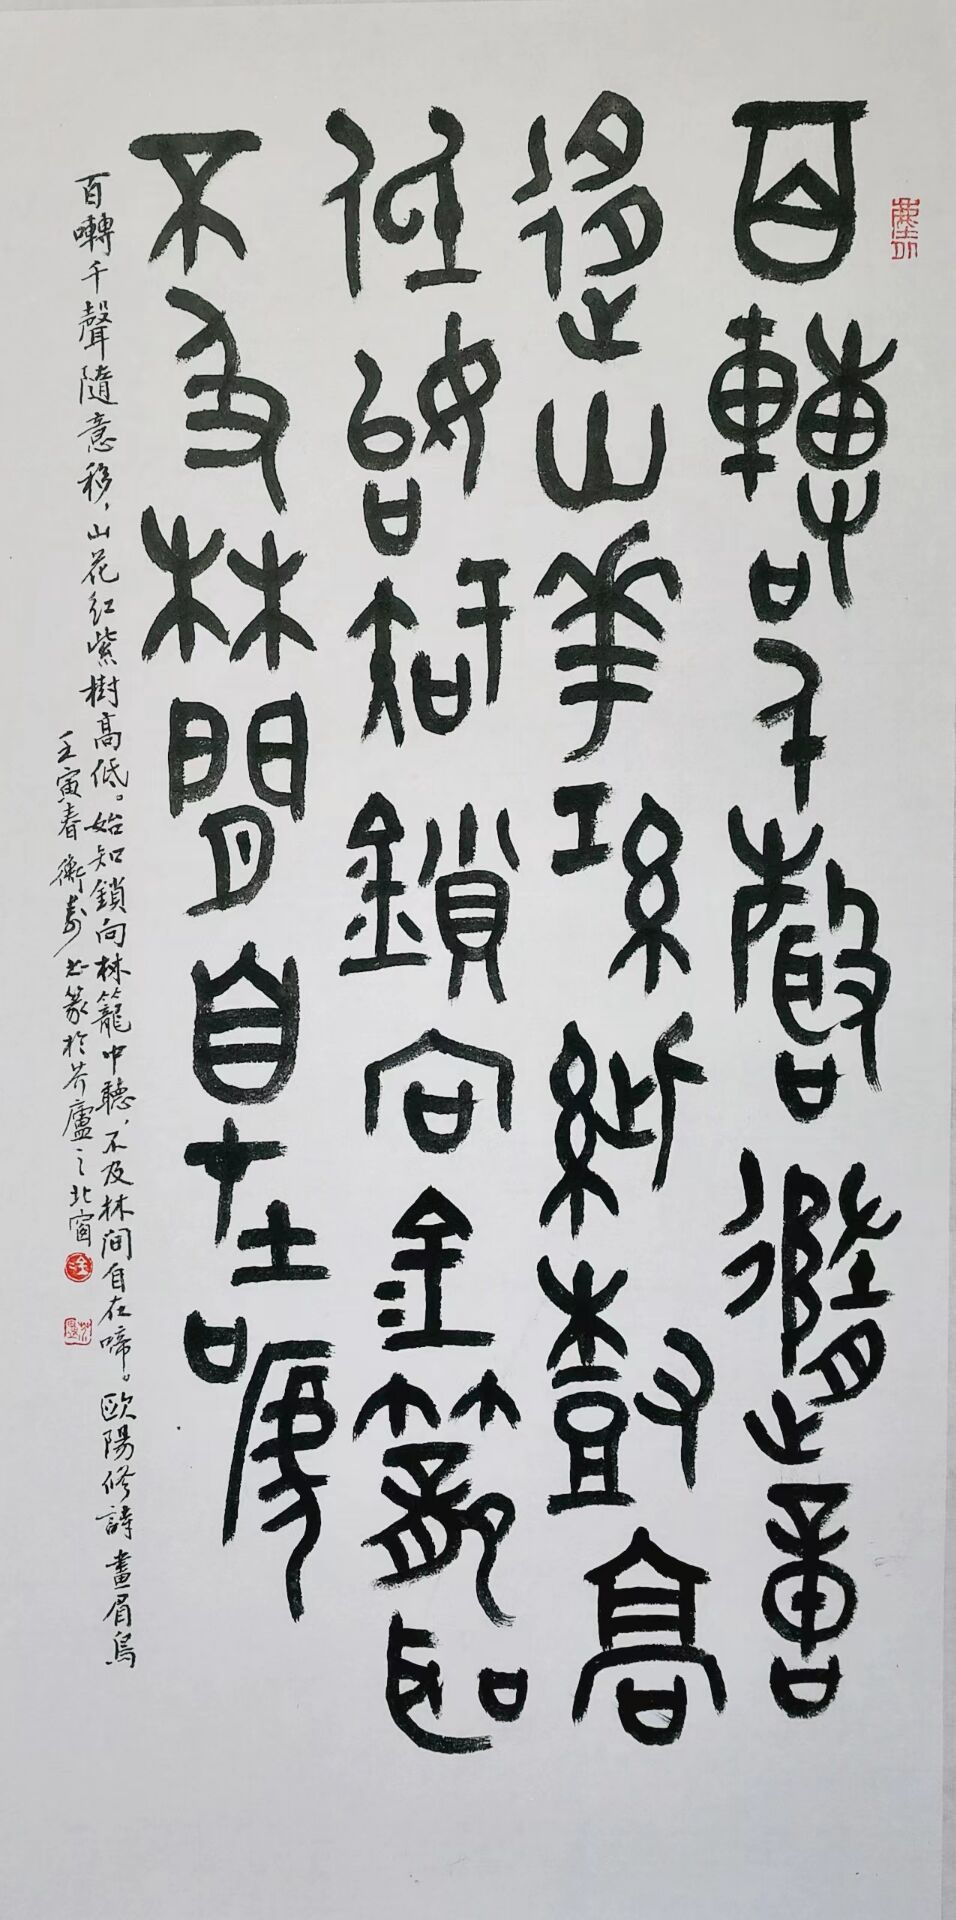 百囀千聲隨意
移山華紅紫樹高
低始知鎖向金籠聽
不及林間自在啼
百囀千聲隨意移，山花红紫樹高低。始知鎖向林籠中聽，不及林间自在啼。歐陽修詩 畫眉鳥
壬寅春衡書篆於芥廬之北窗